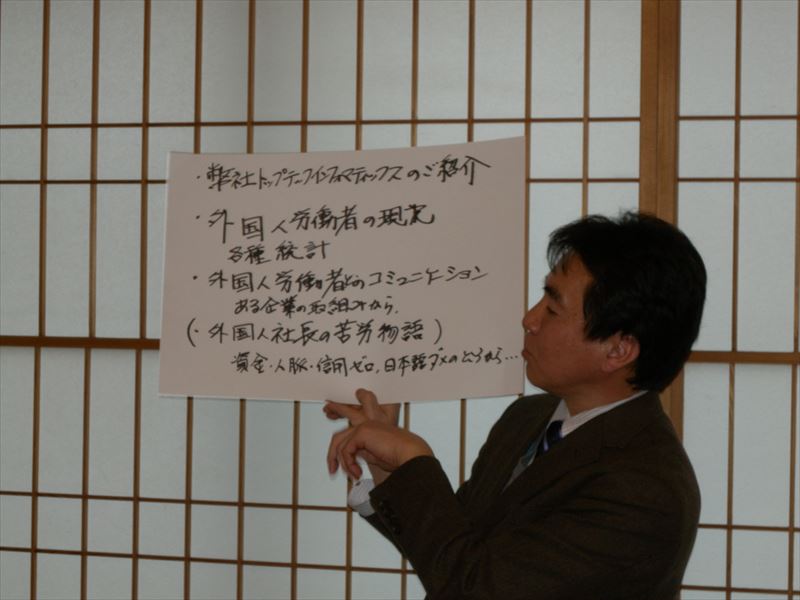 ・弊社トップテックインフォマティックスのご紹介
・外国人労働者の現況
各種統計
・外国人労働者とのコミュニケーション
ある企業の取組みから.
(・外国人社長の苦労物語)
資金・人脈・信用ゼロ,日本語ダメのところから…